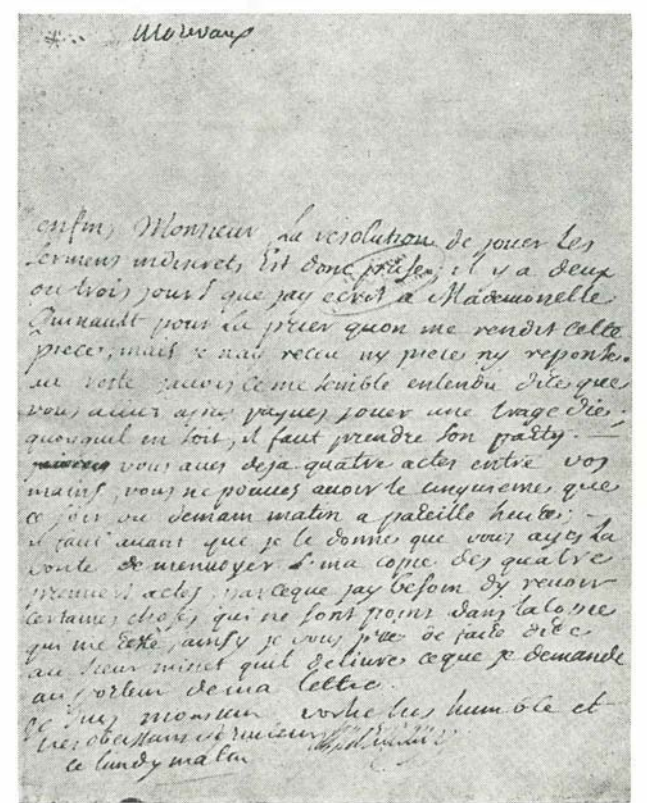 Marivaux
enfin, Monsieur la resolution de jouer les
sermens indiscrets est donc prise, il y a deux
ou trois jours que jay ecrit a Mademoiselle
Quinault pour la prier quon me rendit cette
piece, mais je nay receu ny piece ny reponse.
au reste javois ce me semble entendu dire que
vous aliez apres paques jouer une tragedie,
quoyquil en soit, il faut prendre son party. —
vous aves deja quatre actes entre vos
mains, vous ne pouves avoir le cinquieme que
ce soir ou demain matin a pareille heure, —
il faut avant que je le donne que vous ayes la
bonté de menvoyer ma copie des quatre
premiers actes, parceque jay besoin dy revoir
certaines choses qui ne sont point dans la copie
qui me reste, ainsy je vous prie de faire dire
au sieur minet quil delivre ce que je demande
au porteur de ma lettre.
je suis monsieur votre tres humble et
tres obeissant serviteur
ce lundy matin